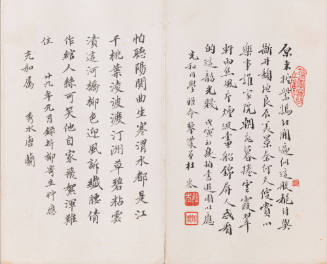 原来姹紫嫣红開遍似這般都付與
斷井頹垣良辰美景奈何天便賞心
樂事誰家院朝飛暮捲雲霞翠
軒雨絲風片煙波畫船錦屏人忒看
的這韶光賤
充和同學雅令
怕聽陽關曲生寒渭水都是江
干桃葉淩波渡汀洲草碧粘雲
漬這河橋柳色迎風訴纖腰倩
作綰人絲可笑他自家飛絮渾難
住
廿九年九月錄新柳
充和屬 秀水唐蘭